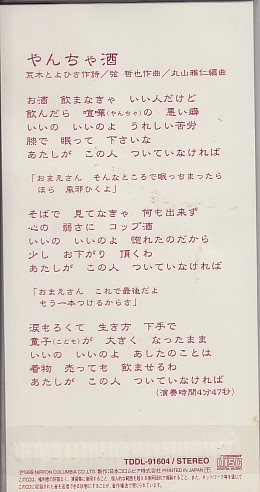 やんちゃ酒
荒木とよひさ作詩／弦 哲也作曲／丸山雅仁編曲
お酒 飲まなきゃ いい人だけど
飲んだら 喧嘩(やんちゃ)の 悪い癖
いいの いいのよ うれしい苦労
膝で 眠って 下さいな
あたしが この人 ついていなければ
「おまえさん そんなところで眠っちまったら
ほら 風邪ひくよ」
そばで 見てなきゃ 何も出来ず
心の 弱さに コップ酒
いいの いいのよ 惚れたのだから
少し お下がり 頂くわ
あたしが この人 ついていなければ
「おまえさん これで最後だよ
もう一本つけるからさ」
涙もろくて 生き方 下手で
童子(こども)が 大きく なったまま
いいの いいのよ あしたのことは
着物 売っても 飲ませるわ
あたしが この人 ついていなければ
(演奏時間4分47秒)
TDDL-91604 / STEREO
Ⓟ1999 NIPPON COLUMBIA CO.,LTD. 製作:日本コロムビア株式会社 PRINTED IN JAPAN